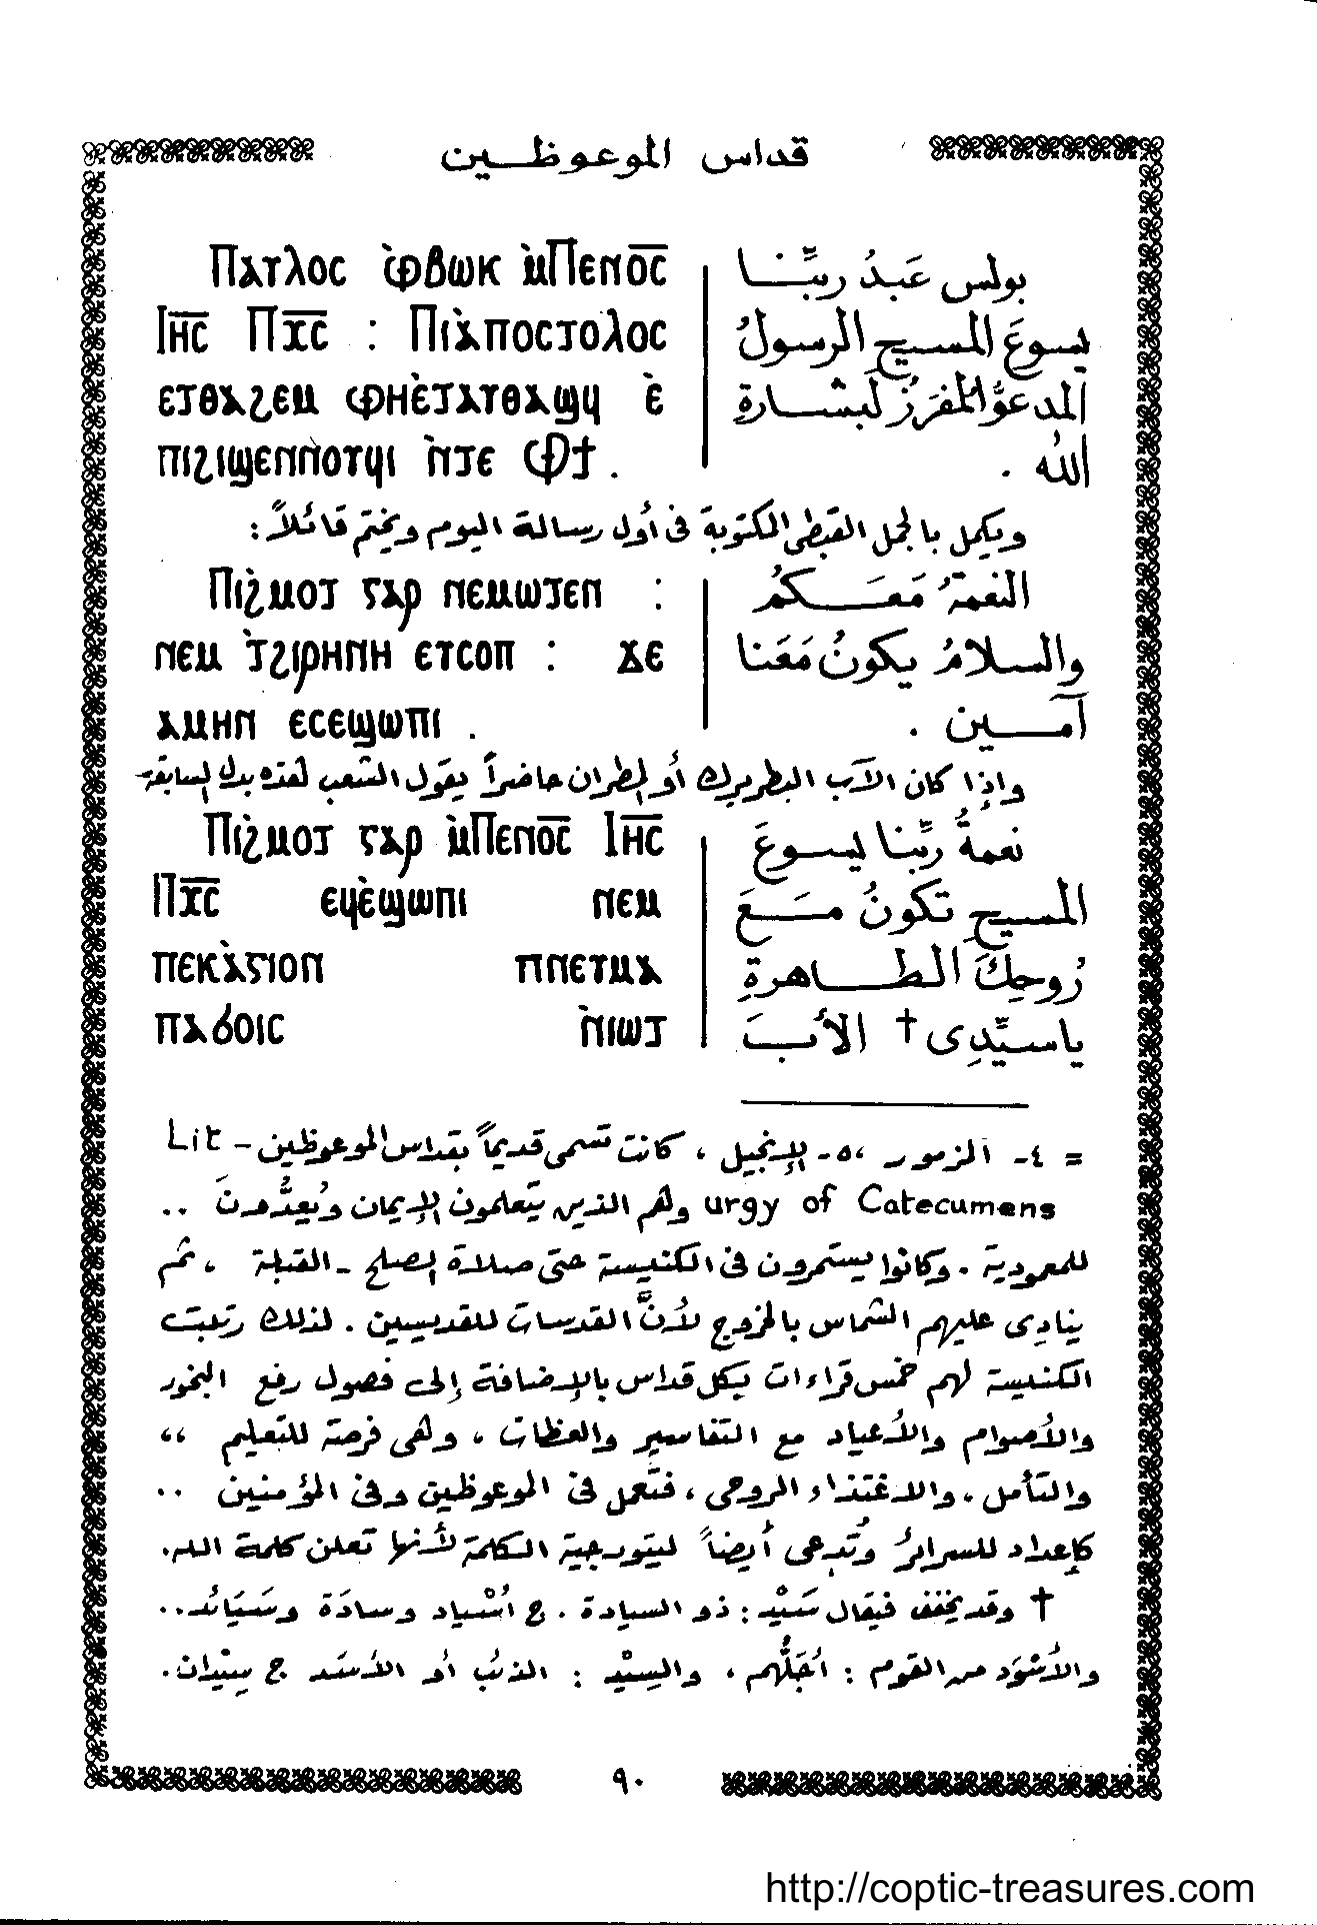 قداس الموعوظين
Ⲡⲁⲩⲗⲟⲥ ⲫ̀ⲃⲱⲕ ⲙ̀Ⲡⲉⲛⲟ̅ⲥ̅
Ⲓⲏ̅ⲥ̅ Ⲡⲭ̅ⲥ̅ : Ⲡⲓⲁ̀ⲡⲟⲥⲧⲟⲗⲟⲥ
ⲉⲧⲑⲁϩⲉⲙ ⲫⲏⲉ̀ⲧⲁⲩⲑⲁϣϥ ⲉ̀
ⲡⲓϩⲓϣⲉⲛⲛⲟⲩϥⲓ ⲛ̀ⲧⲉ Ⲫϯ .
بولس عَبدُ ربِّنا
يسوعَ المسيحِ الرسولُ
المدعوُّ المفرَزُ لبشارةِ
الله .
ويكمل بالجمل القبطى المكتوبة فى أول رسالة اليوم ويختم قائلاً :
Ⲡⲓϩ̀ⲙⲟⲧ ⲅⲁⲣ ⲛⲉⲙⲱⲧⲉⲛ :
ⲛⲉⲙ ⲧ̀ϩⲓⲣⲏⲛⲏ ⲉⲩⲥⲟⲡ : ϫⲉ
ⲁⲙⲏⲛ ⲉⲥⲉϣⲱⲡⲓ .
النعمةُ مَعَكمُ
والسلامُ يكونُ مَعَنا
آمين .
وإذا كان الآب البطريرك أو المطران حاضراً يقول الشعب هذه بدل السابقة
Ⲡⲓϩ̀ⲙⲟⲧ ⲅⲁⲣ ⲙ̀Ⲡⲉⲛⲟ̅ⲥ̅ Ⲓⲏ̅ⲥ̅
Ⲡⲭ̅ⲥ̅ ⲉϥⲉ̀ϣⲱⲡⲓ ⲛⲉⲙ
ⲡⲉⲕⲁ̀ⲅⲓⲟⲛ ⲡⲛⲉⲩⲙⲁ
ⲡⲁϭⲟⲓⲥ ⲛ̀ⲓⲱⲧ
نعمةُ ربِّنا يسوعَ
المسيحِ تكونُ مَعَ
رُوحِكَ الطاهرةِ
ياسيِّدِى † الأبَ
= ٤- المزمور ،٥- الإنجيل ، كانت تسمى قديماً بقداس الموعوظين - Lit
urgy of Catecumens وهم الذين يتعلمون الإيمان ويُعدُّونَ ..
للمعمودية . وكانوا يستمرون فى الكنيسة حتى صلاة الصلح - القبلة ، ثم
ينادِى عليهم الشماس بالخروج لأنَّ القدسات للقديسين . لذلك رتبت
الكنيسة لهم خمس قراءات بكل قداس بالإضافة إلى فصول رفع البخور
والأصوام والأعياد مع التفاسير والعظات ، وهى فرصة للتعليم ،،
والتأمل ، والاغتذاء الروحى ، فتعمل فى الموعوظين وفى المؤمنين ..
كإعداد للسرائر وتُدعى أيضاً ليتورجية الكلمة لأنها تعلن كلمة الله .
† وقد يخفف فيقال سَيْد : ذو السيادة . ج أسْياد وسادَة وسَيَائد ..
والأسْوَد من القوم : أجَلُّهم ، والسِيْد : الذئب أو الأسَد ج سِيْدان .
٩٠
http://coptic-treasures.com